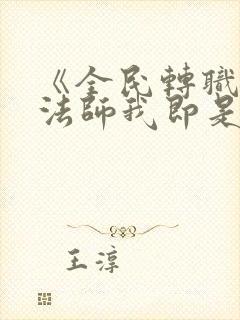 《全民轉職
法師我即是
王淳